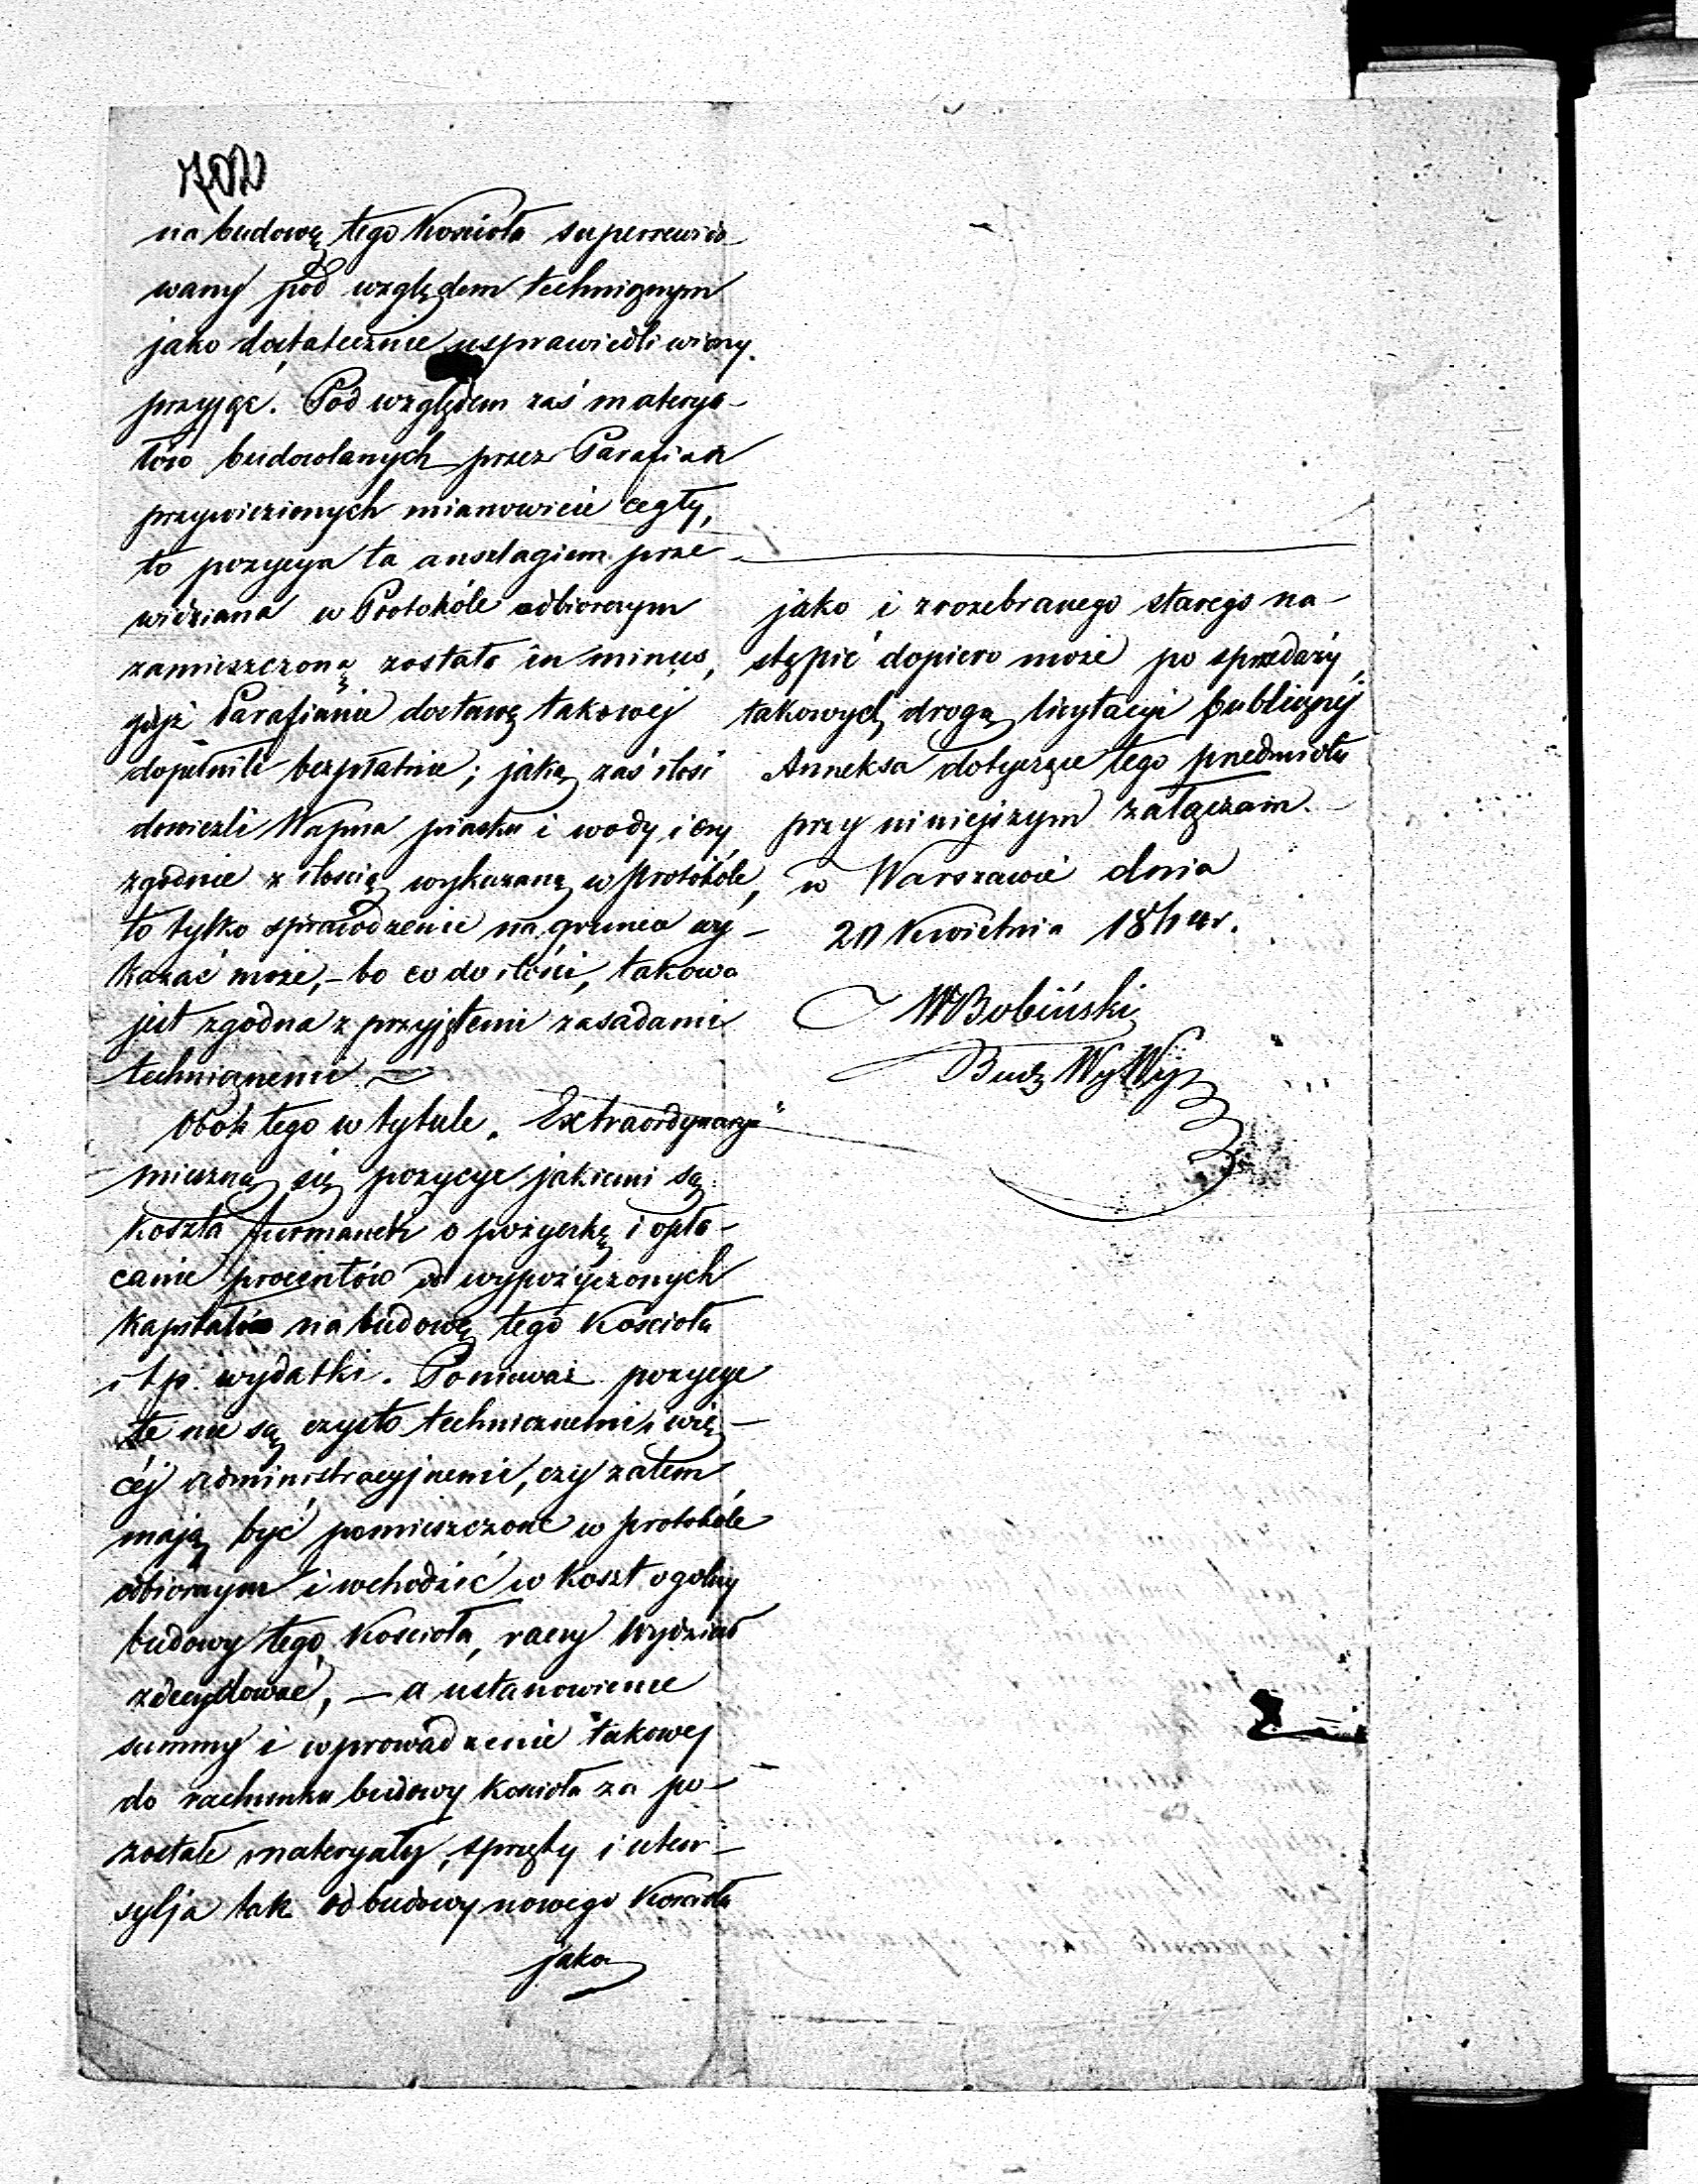 702
na budowę tego Kościoła superrewido
wany pod względem technicznym
jako dostatecznie usprawiedliwiony
przyjąć. Pod względem zaś materya-
łów budowlanych przez Parafian
przywiezionych mianowicie cegły,
to pozycya ta anszlagiem prze-
widziana w Protokóle odbiorczym
zamieszczoną została in minus,
gdyż Parafianie dostawę takowej
dopełnili bezpłatnie; jaką zaś ilość
dowieźli Wapna piasku i wody, i czy
zgodnie z ilością wykazaną w protokóle,
to tylko sprawdzenie na gruncie wy-
kazać może, – bo co do ilości, takowa
jest zgodna z przyjętemi zasadami
technicznemi.
Obok tego w tytule „Extraordynarja"
mieszczą się pozycye jakiemi są:
koszta furmanek o pożyczkę i opła-
canie procentów od wypożyczonych
kapitałów na budowę tego Kościoła
i t p. wydatki. Ponieważ pozycye
te nie są czysto technicznemi, wię-
céj administracyjnemi, czy zatem
mają być pomieszczone w protokóle
odbiorczym i wchodzić w koszt ogolny
budowy tego Kościoła, raczy Wydział
zdecydować, – a ustanowienie
summy i wprowadzenie takowej
do rachunku budowy kościoła za po-
zostałe materyały, sprzęty i uten-
sylja tak od budowy nowego Kościoła
jako
jako i z rozebranego starego na-
stąpić dopiero może po sprzedaży
takowych drogą licytacyi publicznej
Anneksa dotyczące tego przedmiotu
przy niniejszym załączam.
w Warszawie dnia
20 Kwietnia r.
WBobiński
Bud